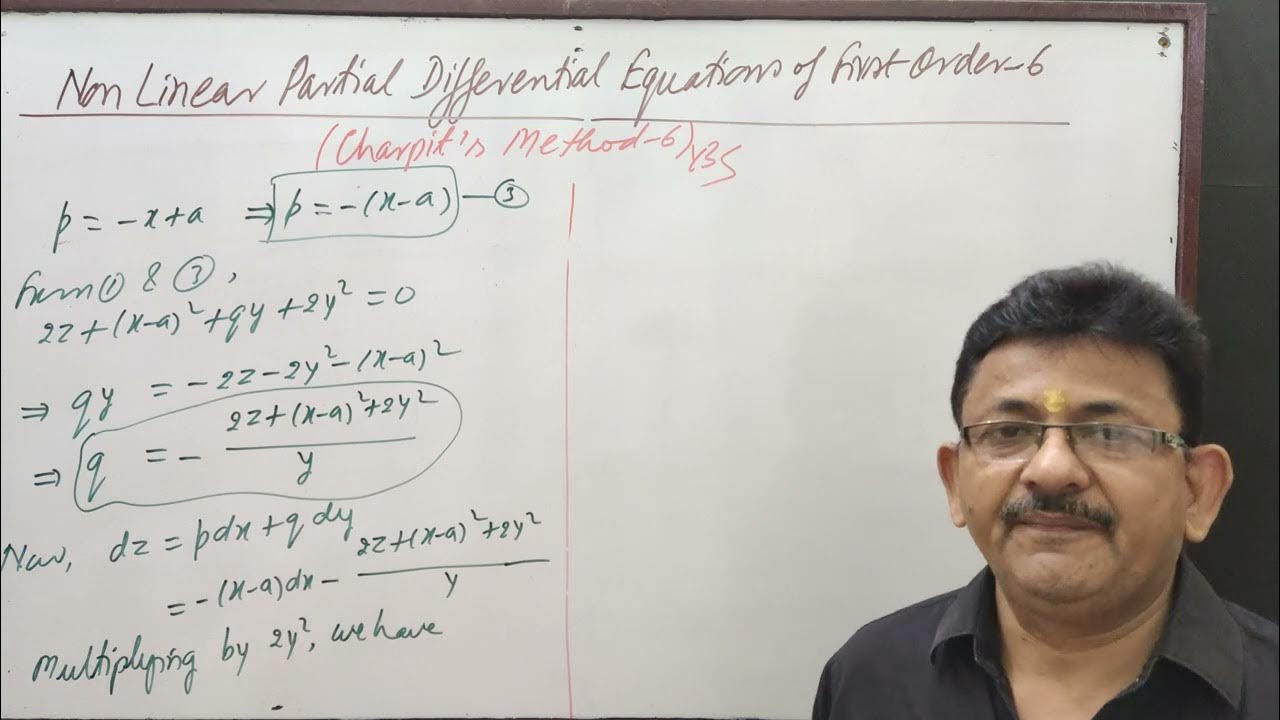 Non Linear Partial Differential Equations of First Order-6
(Charpit's Method-6)
p = -x+a ⇒ p = -(x-a) — ③
From ① & ③,
2z+(x-a)²+qy+2y² = 0
⇒ qy = -2z-2y²-(x-a)²
⇒ q = - (2z+(x-a)²+2y²)/y
Now, dz = pdx+qdy
= -(x-a)dx - (2z+(x-a)²+2y²)/y
Multiplying by 2y², we have